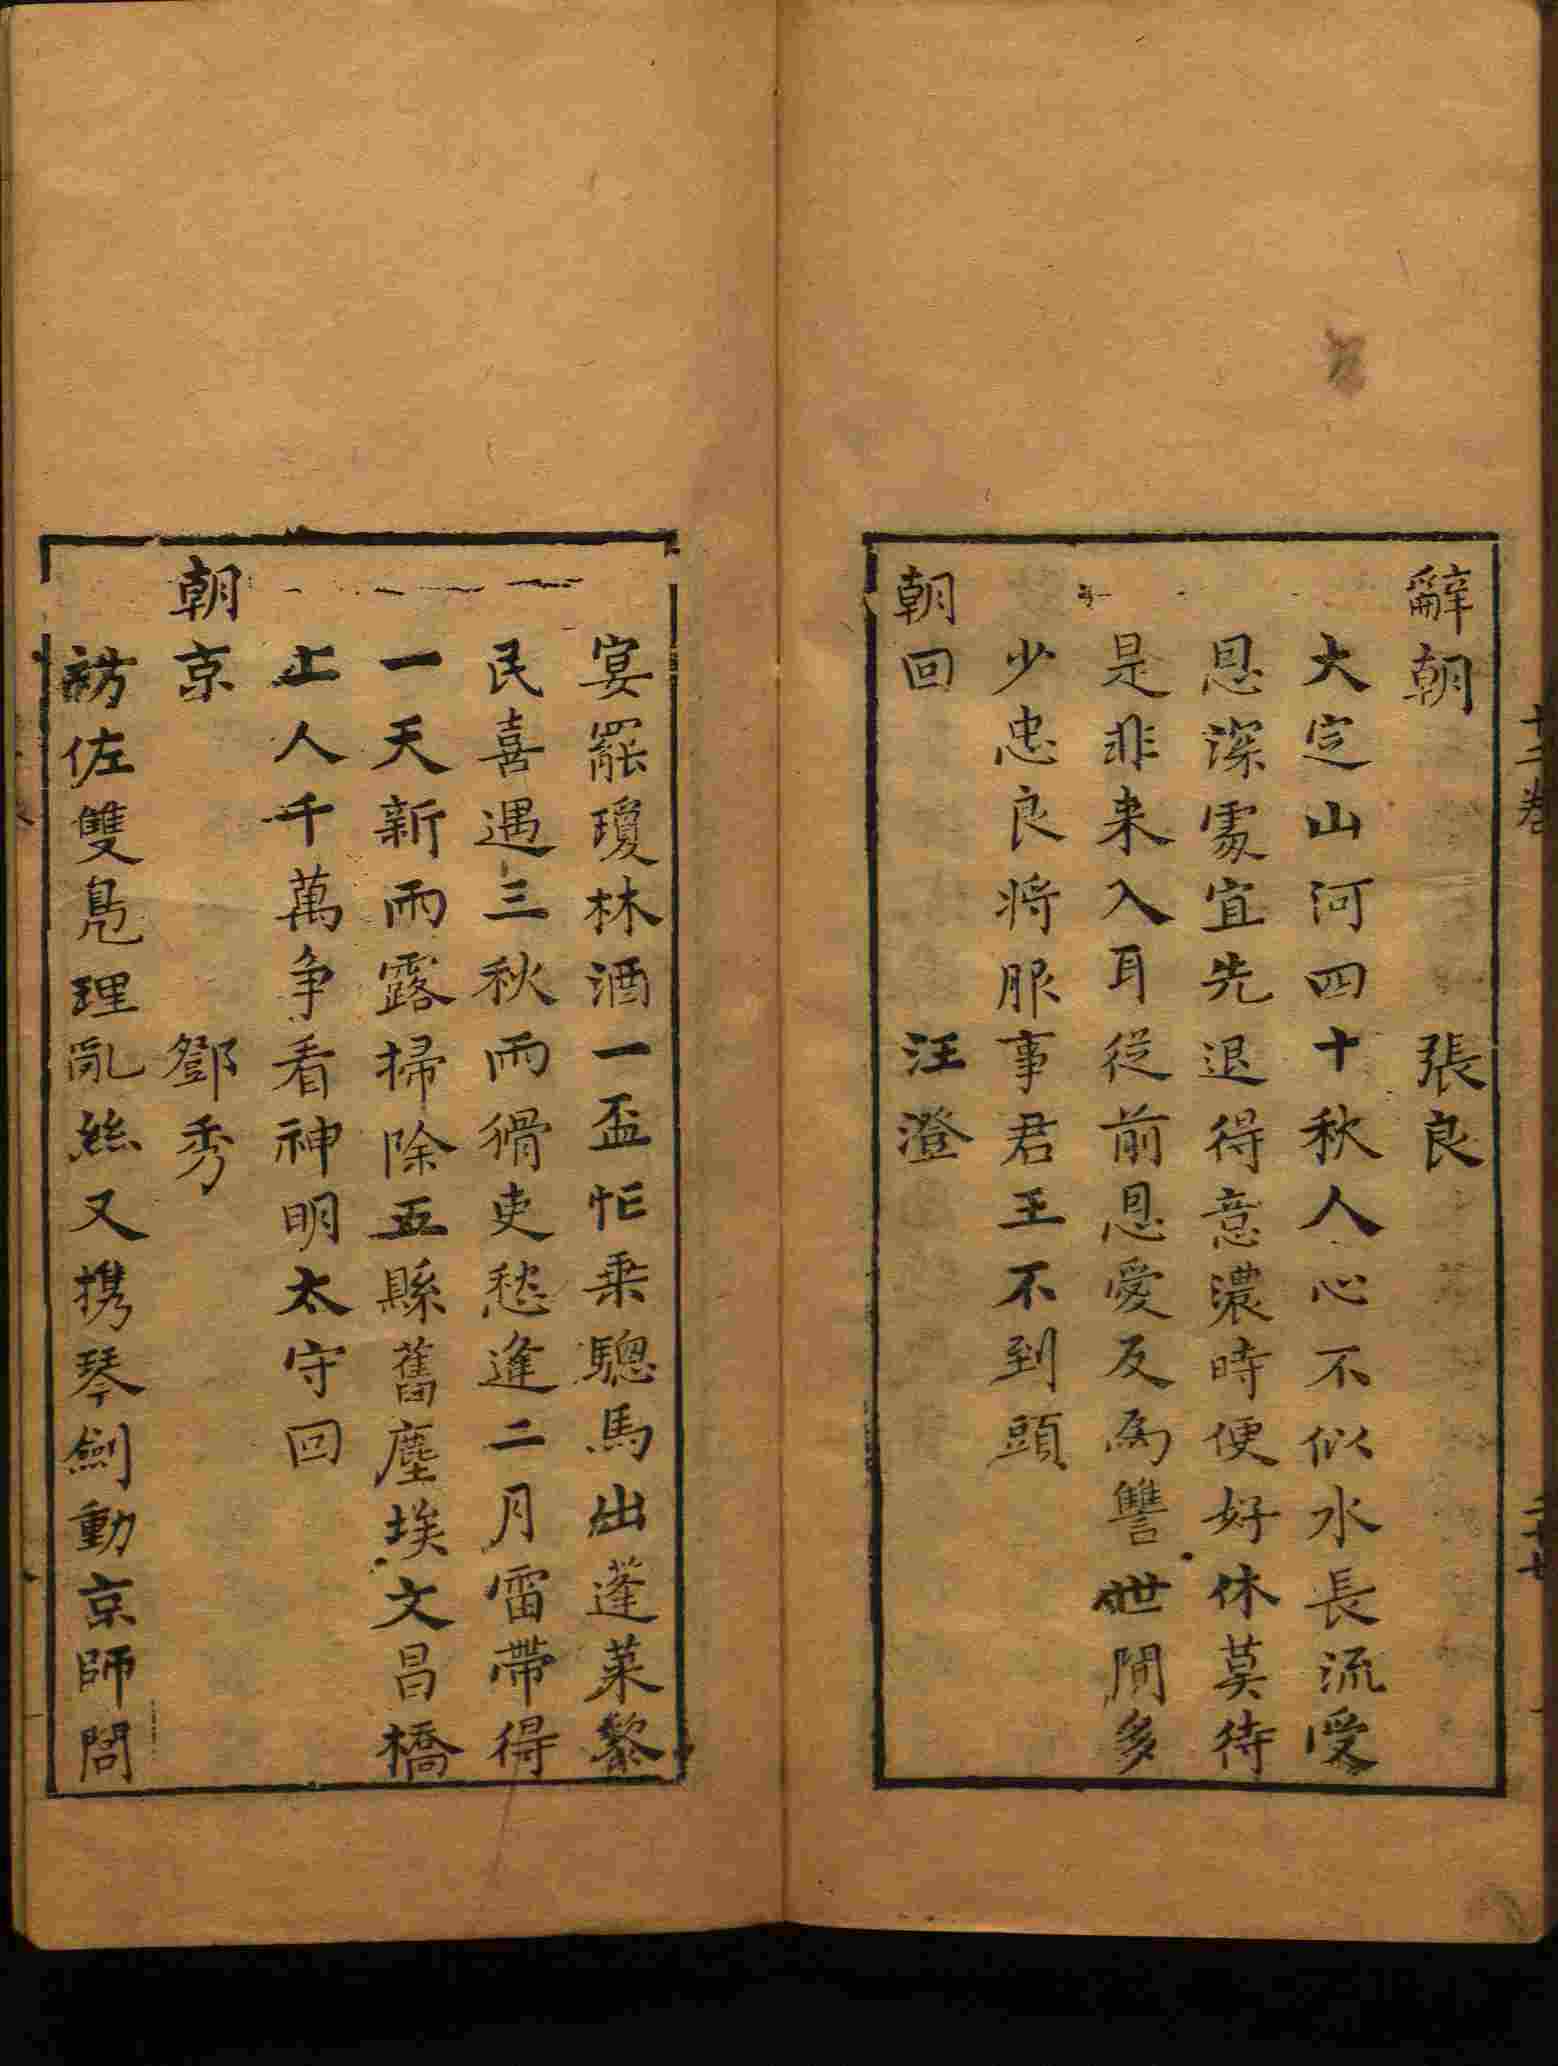 十二卷
二十七
辭朝 張良
大定山河四十秋人心不似水長流受
恩深處宜先退得意濃時便好休莫待
是非来入耳從前恩愛反為讐世間多
少忠良將服事君王不到頭
朝回 汪澄
宴罷瓊林酒一盃忙乗驄馬出蓬萊黎
民喜遇三秋雨猾吏愁逢二月雷帶得
一天新雨露掃除五縣舊塵埃文昌橋
上人千萬争看神明太守回
朝京 鄧秀
訪佐雙鳬理亂絲又携琴劍動京師問